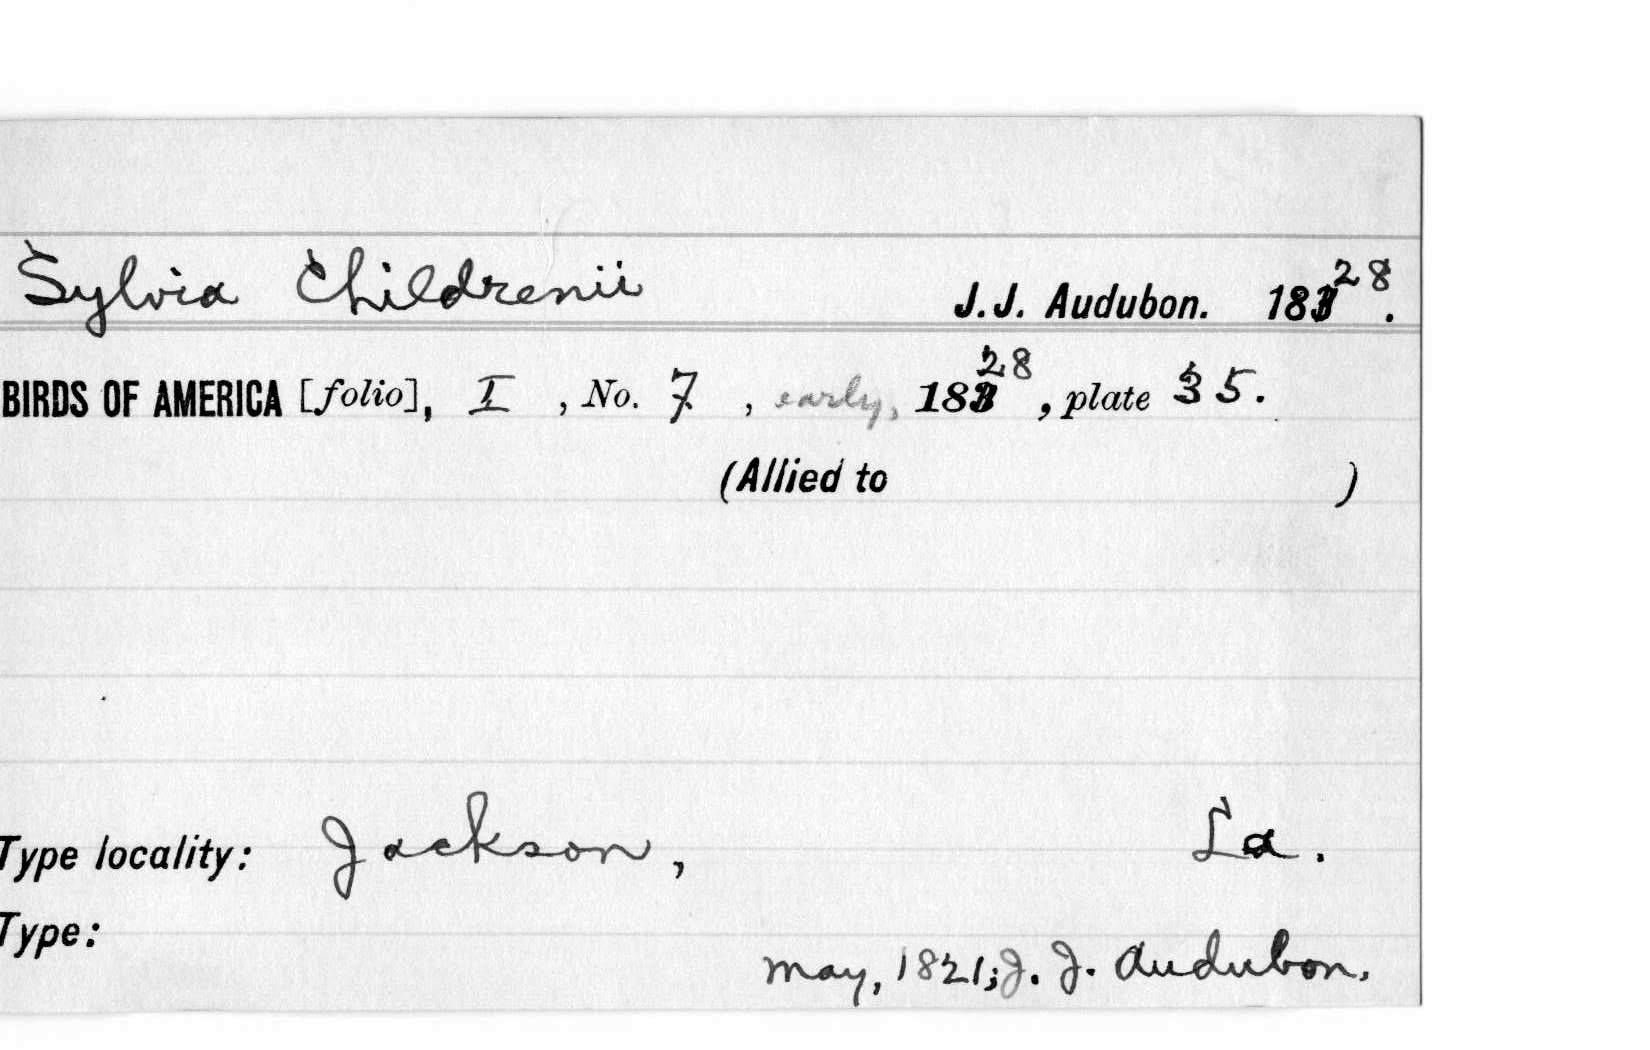 Sylvia Childrenii J. J. Audubon. 1828.
BIRDS OF AMERICA [folio], I, No. 7, early, 1828, plate 35.
(Allied to )
Type locality: Jackson, La.
Type:
May, 1821; J. J. Audubon.